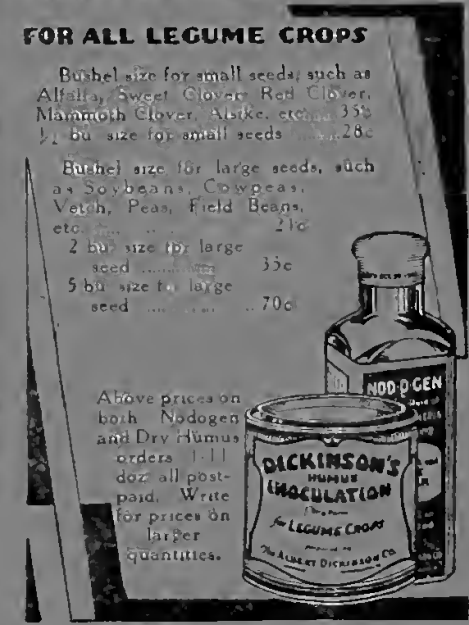 FOR ALL LEGUME CROPS
Bushel size for small seeds, such as
Alfalfa, Sweet Clover, Red Clover,
Mammoth Clover, Alsike, etc. 35c
½ bu size for small seeds ....... 28c
Bushel size for large seeds, such
as Soybeans, Cowpeas,
Vetch, Peas, Field Beans,
etc. ....
2 bu size for large
seed ............ 35c
5 bu size for large
seed ............ 70c
Above prices on
both Nodogen
and Dry Humus
orders 1-11
doz all post-
paid. Write
for prices on
larger
quantities.
NOD-O-GEN
DICKINSON'S
HUMUS
INOCULATION
for LEGUME CROPS
The ALBERT DICKINSON CO.